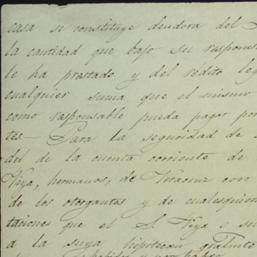 casa se constituye deudora del
la cantidad que bajo su respons
le ha prestado y del rédito leg
cualquier suma que el mismo
como responsable pueda pagar por
tas - Para la seguridad de
del de la cuenta corriente de
Veya, hermanos, de Veracruz con
de los otorgantes y de cualesquier
taciones que el S. Veya y su
a la suya hipotecan